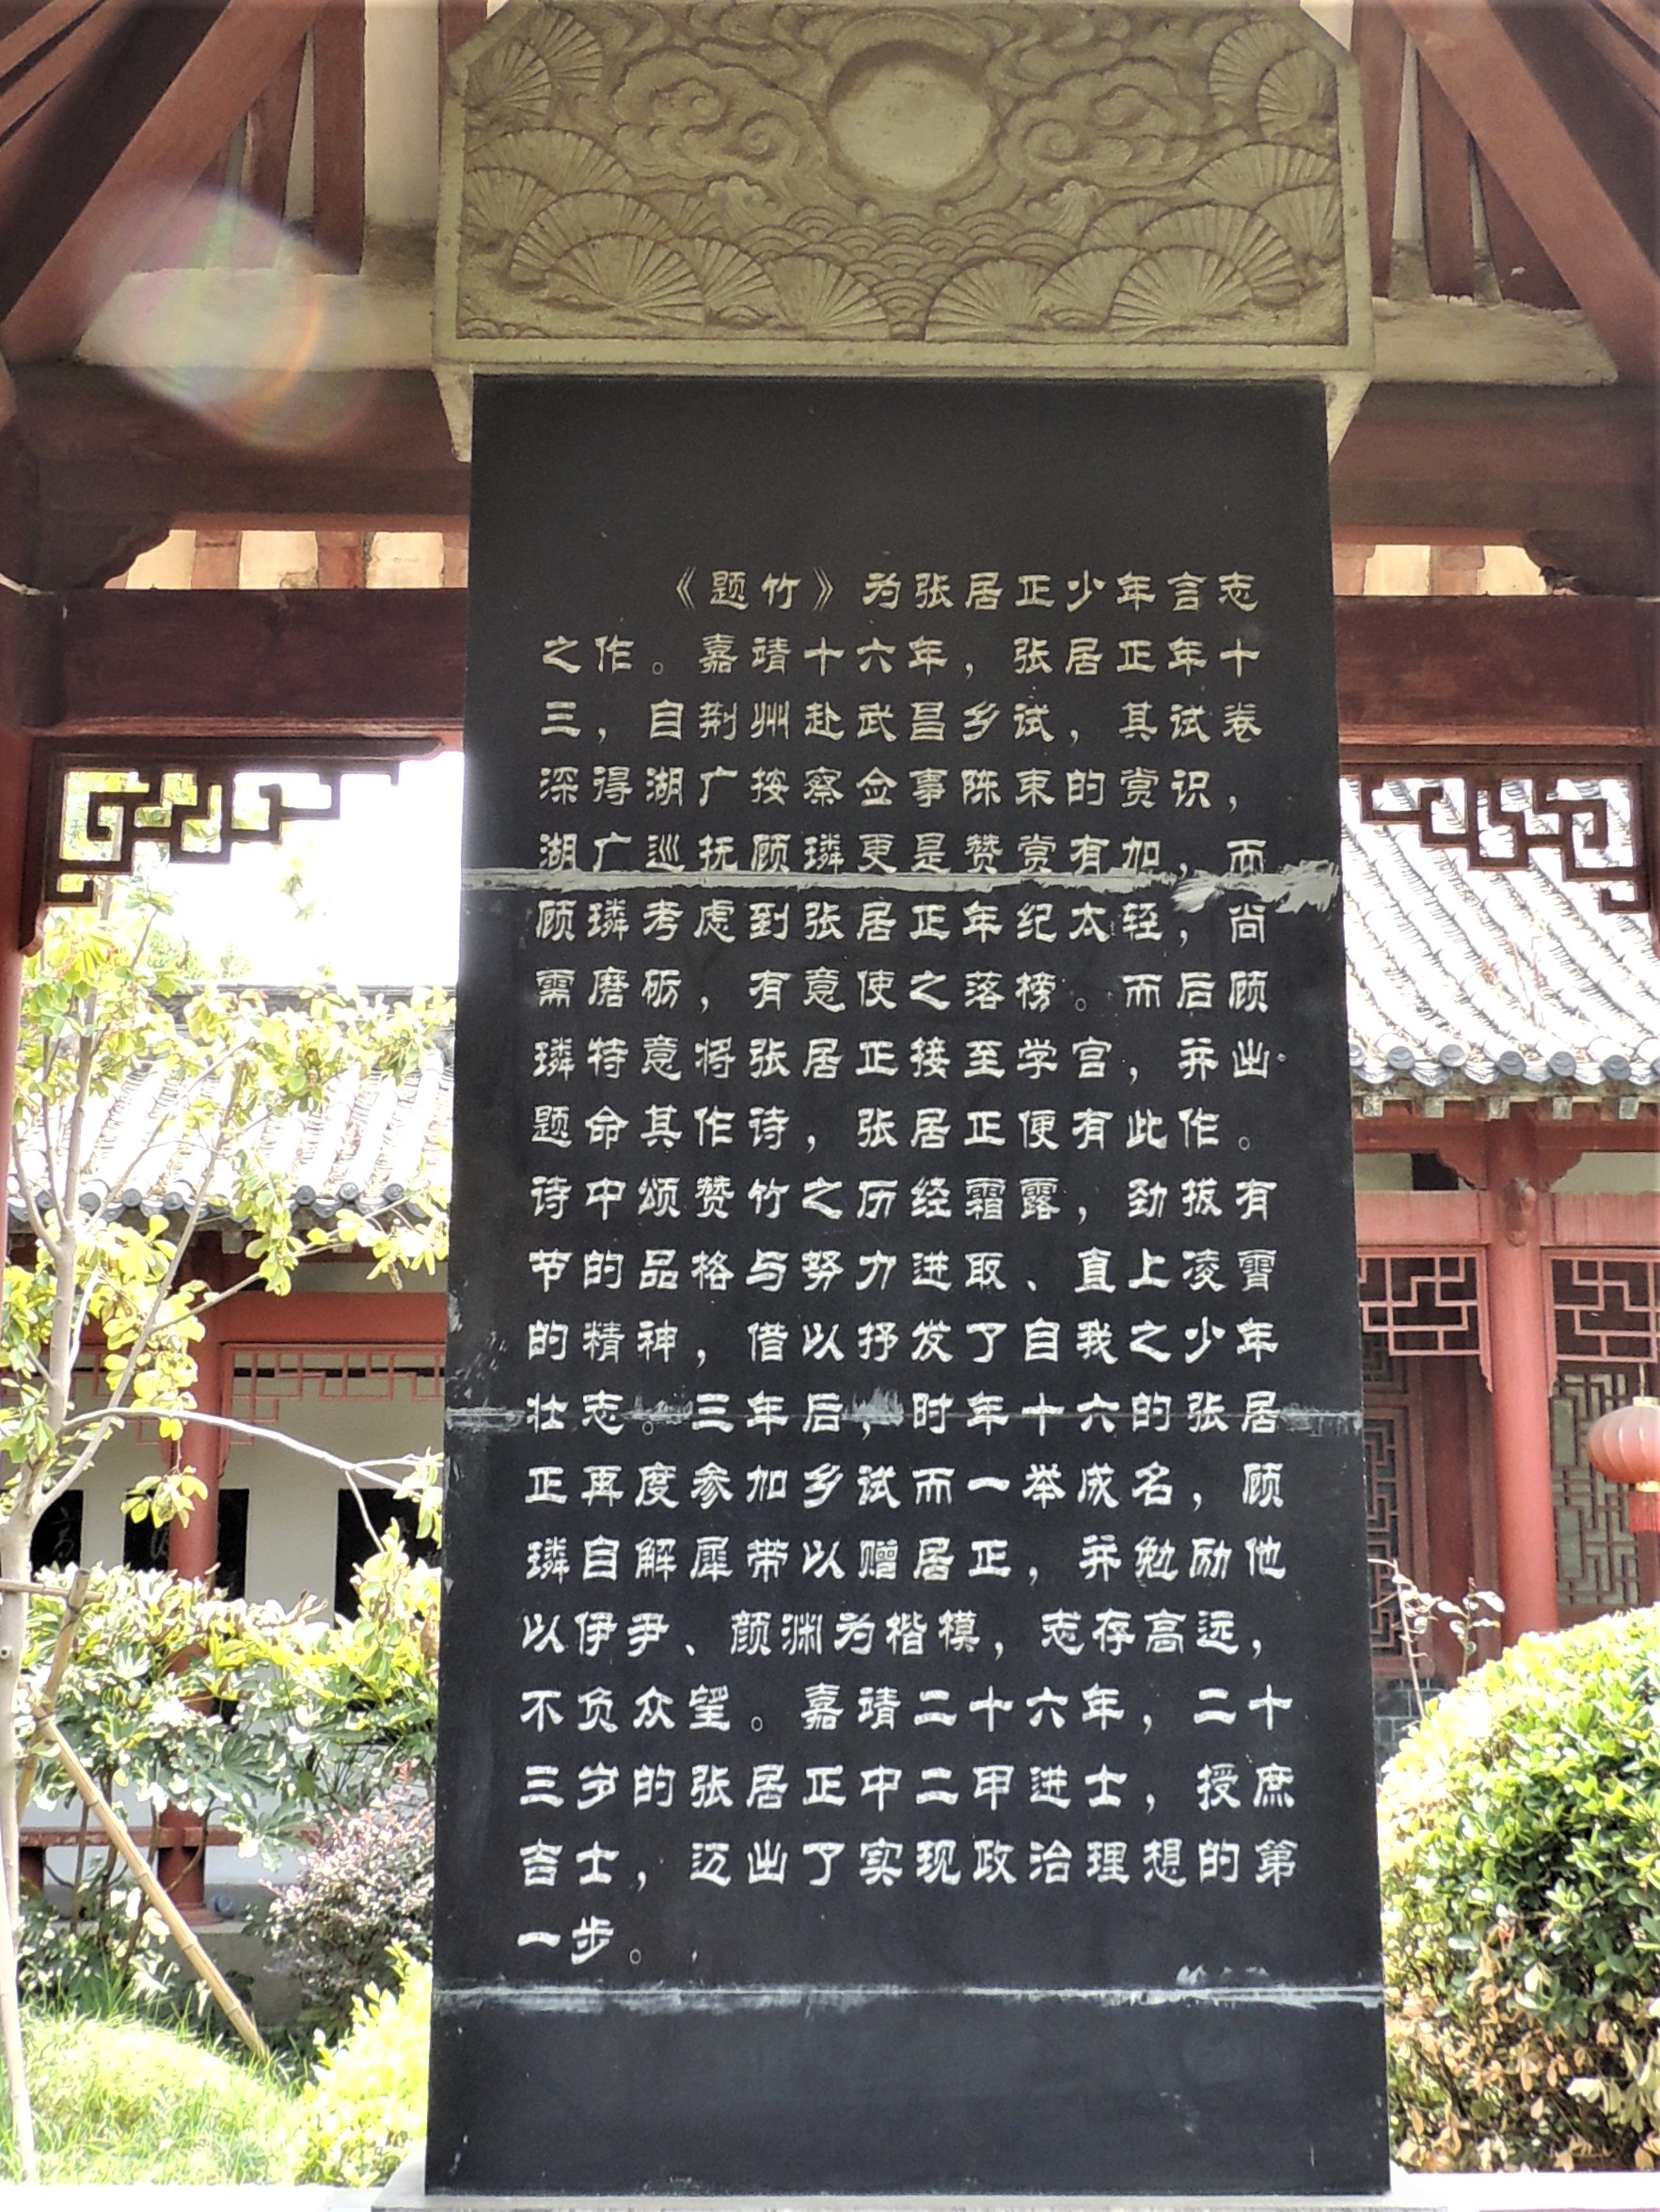 《题竹》为张居正少年言志
之作。嘉靖十六年，张居正年十
三，自荆州赴武昌乡试，其试卷
深得湖广按察佥事陈束的赏识，
湖广巡抚顾璘更是赞赏有加，而
顾璘考虑到张居正年纪太轻，尚
需磨砺，有意使之落榜。而后顾
璘特意将张居正接至学宫，并出
题命其作诗，张居正便有此作。
诗中颂赞竹之历经霜露，劲拔有
节的品格与努力进取、直上凌霄
的精神，借以抒发了自我之少年
壮志。三年后，时年十六的张居
正再度参加乡试而一举成名，顾
璘自解犀带以赠居正，并勉励他
以伊尹、颜渊为楷模，志存高远，
不负众望。嘉靖二十六年，二十
三岁的张居正中二甲进士，授庶
吉士，迈出了实现政治理想的第
一步。